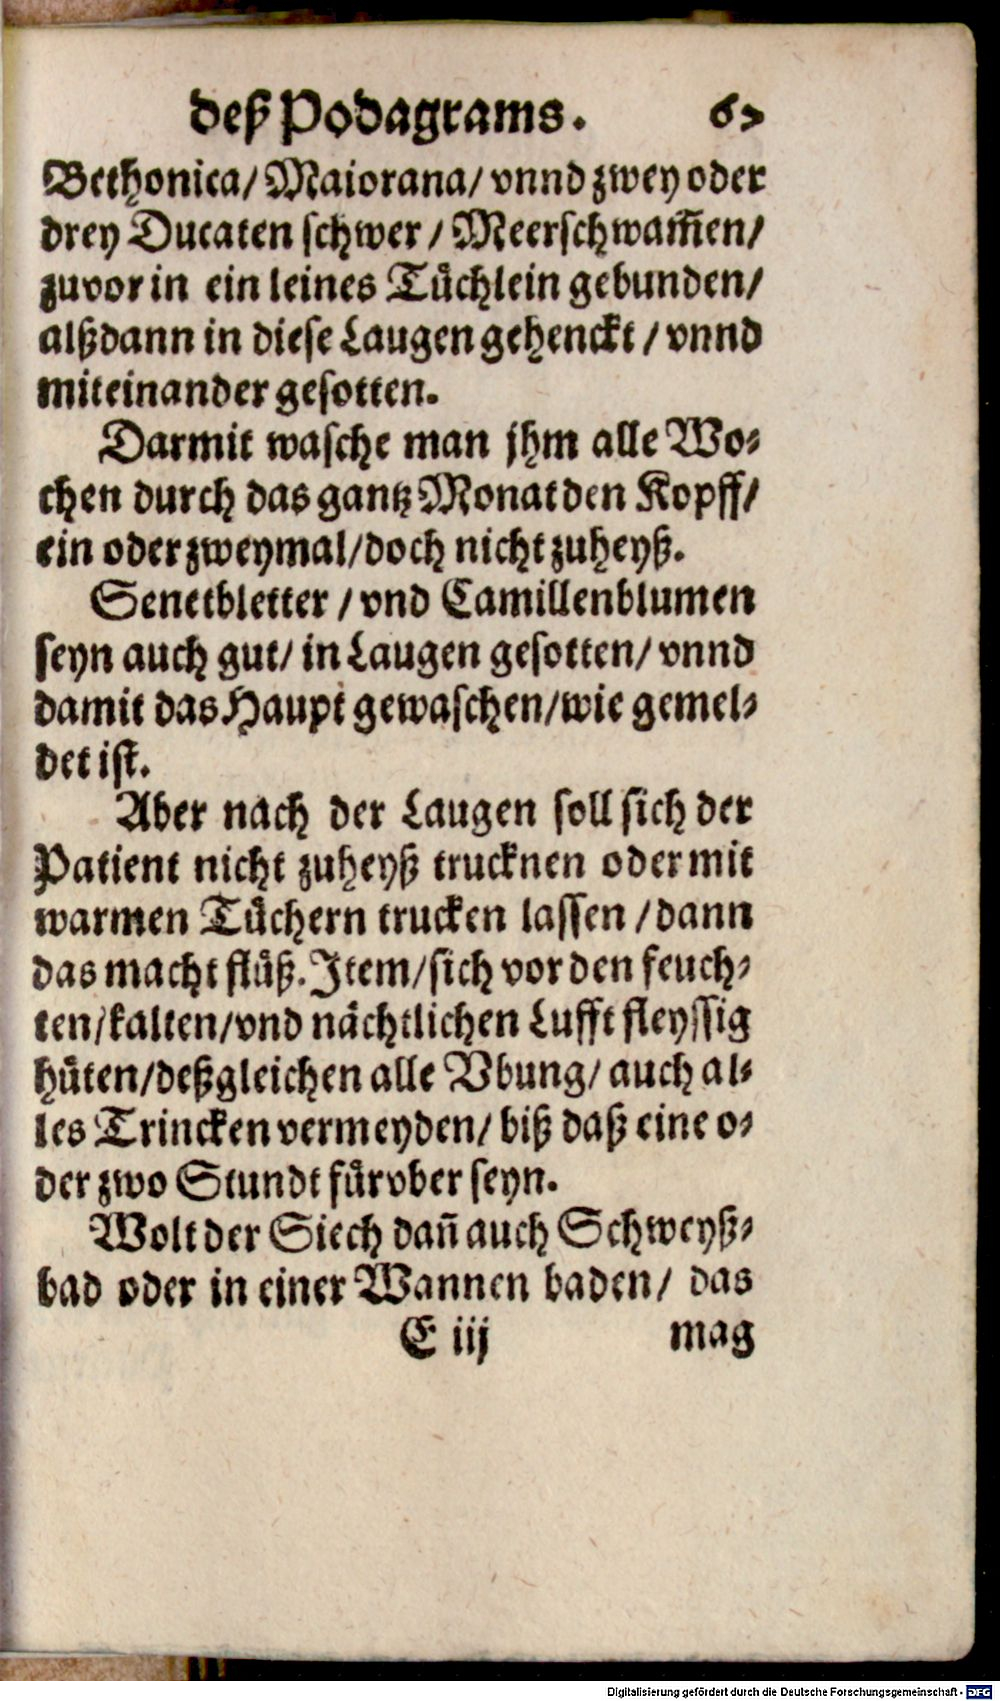 deß Podagrams. 67
Bethonica/ Maiorana/ vnnd zwey oder
drey Ducaten schwer / Meerschwam̃en/
zuvor in ein leines Tuͤchlein gebunden/
alßdann in diese Laugen gehenckt / vnnd
miteinander gesotten.
Darmit wasche man jhm alle Wo⸗
chen durch das gantz Monat den Kopff/
ein oder zweymal/doch nicht zuheyß.
Senetbletter / vnd Camillenblumen
seyn auch gut/ in Laugen gesotten/ vnnd
damit das Haupt gewaschen/wie gemel⸗
det ist.
Aber nach der Laugen soll sich der
Patient nicht zuheyß trucknen oder mit
warmen Tuͤchern trucken lassen /dann
das macht fluͤß. Item/sich vor den feuch⸗
ten/kalten/vnd naͤchtlichen Lufft fleyssig
huͤten/deßgleichen alle Vbung/ auch al⸗
les Trincken vermeyden/ biß daß eine o⸗
der zwo Stundt fuͤrvber seyn.
Wolt der Siech dañ auch Schweyß⸗
bad oder in einer Wannen baden/ das
E iij mag
Digitalisierung gefördert durch die Deutsche Forschungsgemeinschaft - DFG